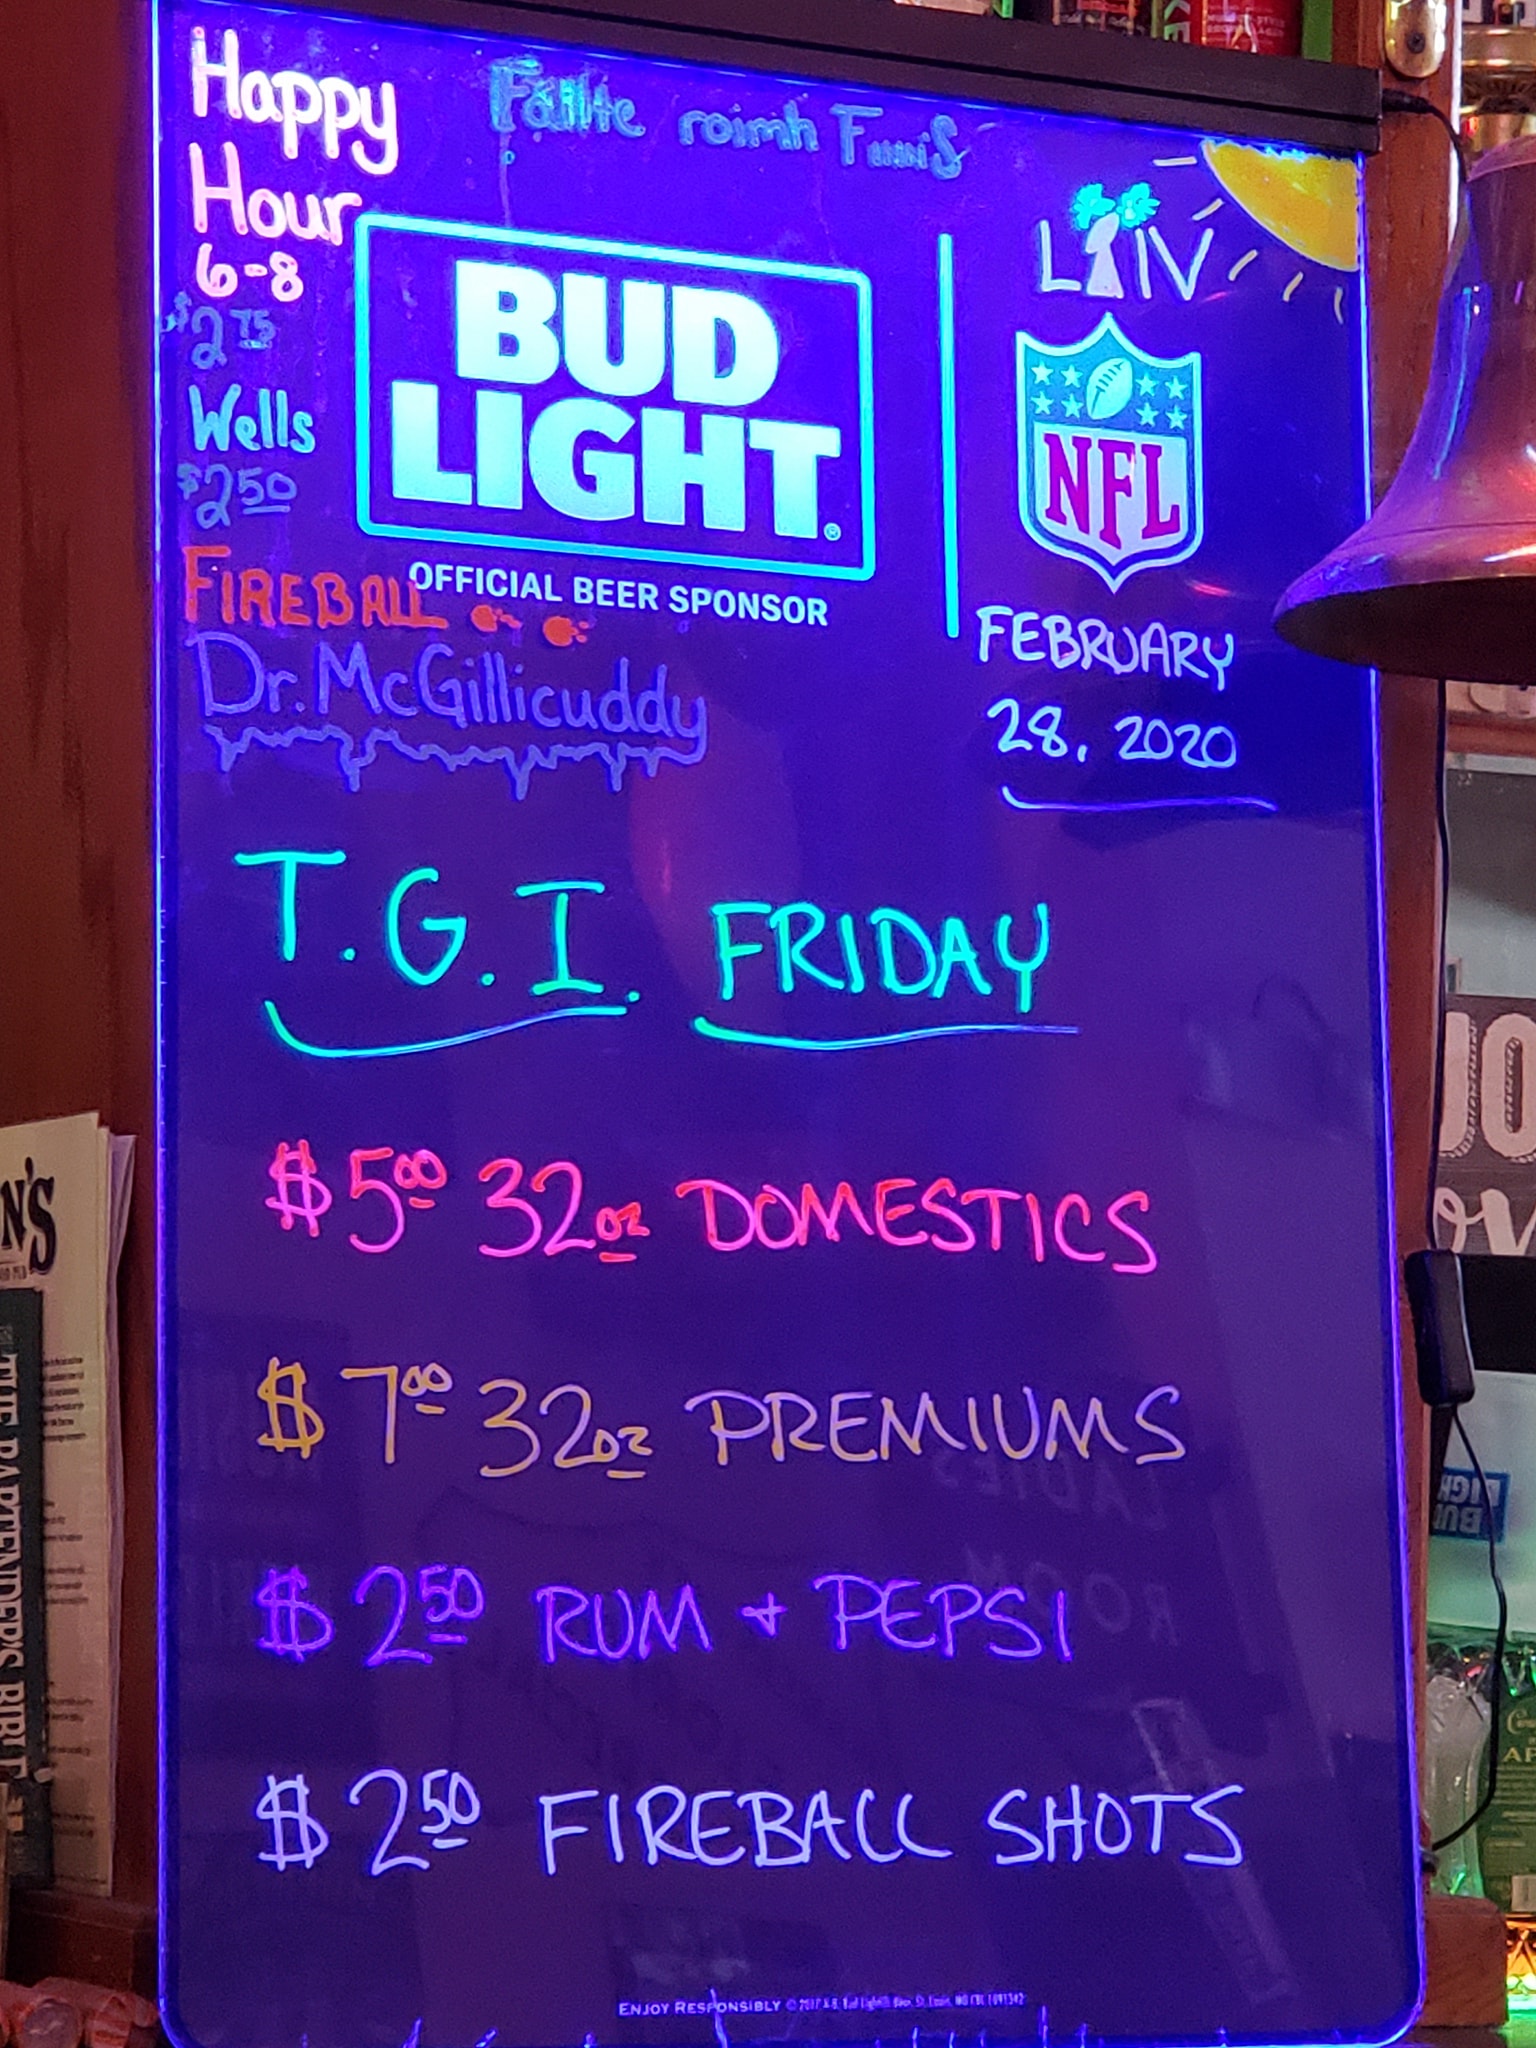 Happy
Hour
6-8
$2 75
Wells
$2 50
FIREBALL
Dr. McGillicuddy
Fáilte roimh Finn's
BUD
LIGHT®
OFFICIAL BEER SPONSOR
LIV
NFL
FEBRUARY
28, 2020
T.G.I. FRIDAY
$5 00 32oz DOMESTICS
$7 00 32oz PREMIUMS
$2 50 RUM + PEPSI
$2 50 FIREBALL SHOTS
LADIES
ROOM
ENJOY RESPONSIBLY
N'S
THE BARTENDER'S BIBLE
BUD